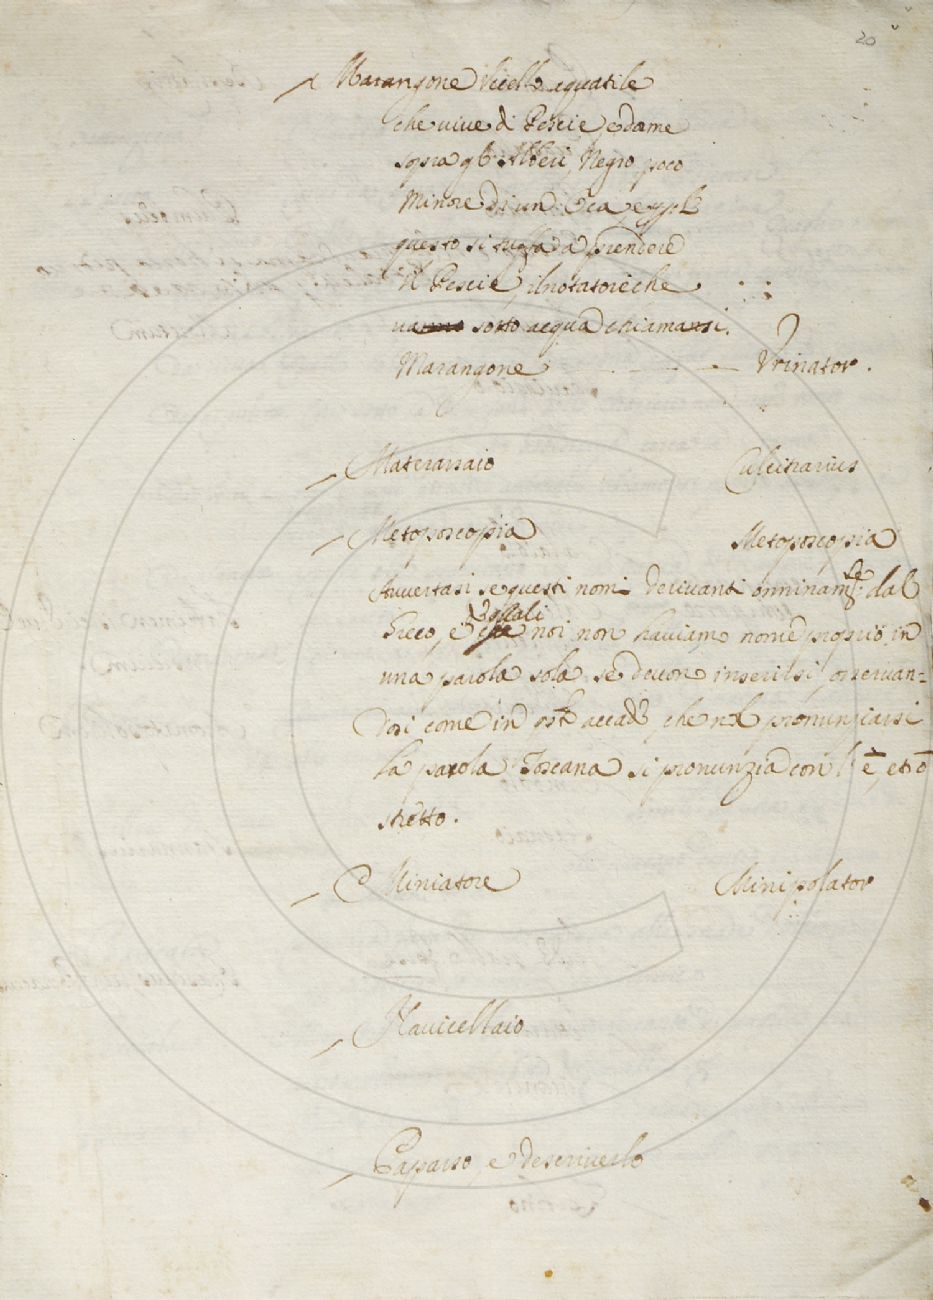 20
Marangone Vccello aquatile
che uiue di Pescie, e dorme
sopra gli Alberi, Negro poco
Minore di un' Oca, e
questo si tuffa à prendere
il Pescie, i notatori che
uanno sotto acqua chiamansi
Marangone — Vrinator.
Materassaio Culcitrarius
Metoposcopia Metoposcopia
Auuertasi se questi nomi deriuanti onninam.te dal
Greco, e che de quali noi non habbiam nome proprio in
una parola sola se deuon inserirsi, osseruan=
dosi come in accade che nel pronunziarsi
la parola Toscana si pronunzia con l' ē, et ō
stretto.
Miniatore Minipolator
Nauicellaio
Papasso, e descriuerlo